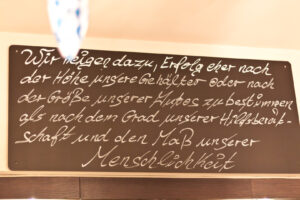 Wir neigen dazu, Erfolg eher nach
der Höhe unsere Gehälter oder nach
der Größe unserer Autos zu bestimmen
als nach dem Grad unserer Hilfsbereit-
schaft und den Maß unserer
Menschlichkeit